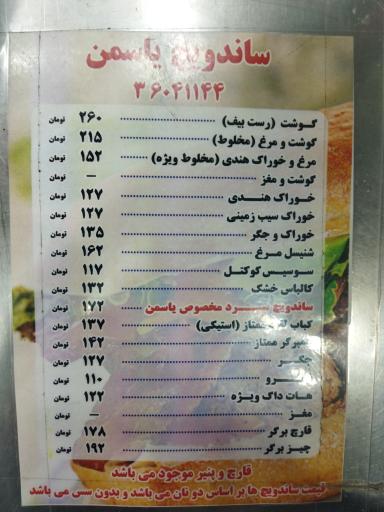 ساندویچ یاسمن
۳۶۰۴۱۱۴۴
گوشت (رست بیف) ۲۶۰ تومان
گوشت و مرغ (مخلوط) ۲۱۵ تومان
مرغ و خوراک هندی (مخلوط ویژه) ۱۵۲ تومان
گوشت و مغز – تومان
خوراک هندی ۱۲۷ تومان
خوراک سیب زمینی ۱۲۷ تومان
خوراک و جگر ۱۳۵ تومان
شنیسل مرغ ۱۶۲ تومان
سوسیس کوکتل ۱۱۷ تومان
کالباس خشک ۱۳۲ تومان
ساندویچ سرد مخصوص یاسمن ۱۷۲ تومان
کباب ممتاز (استیکی) ۱۳۷ تومان
ممتاز ۱۴۲ تومان
جگر ۱۲۷ تومان
۱۱۰ تومان
هات داگ ویژه ۱۲۲ تومان
مغز – تومان
قارچ برگر ۱۷۸ تومان
چیز برگر ۱۹۲ تومان
قارچ و پنیر موجود می باشد
قیمت ساندویچ ها بر اساس دو نان می باشد و بدون سس می باشد